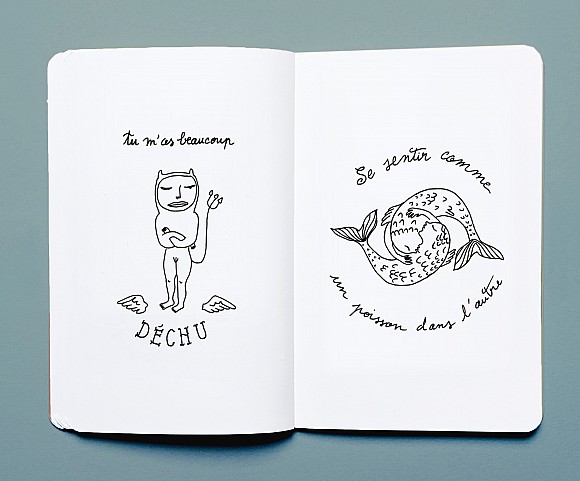 tu m'as beaucoup
DÉCHU
Se sentir comme
un poisson dans l'autre